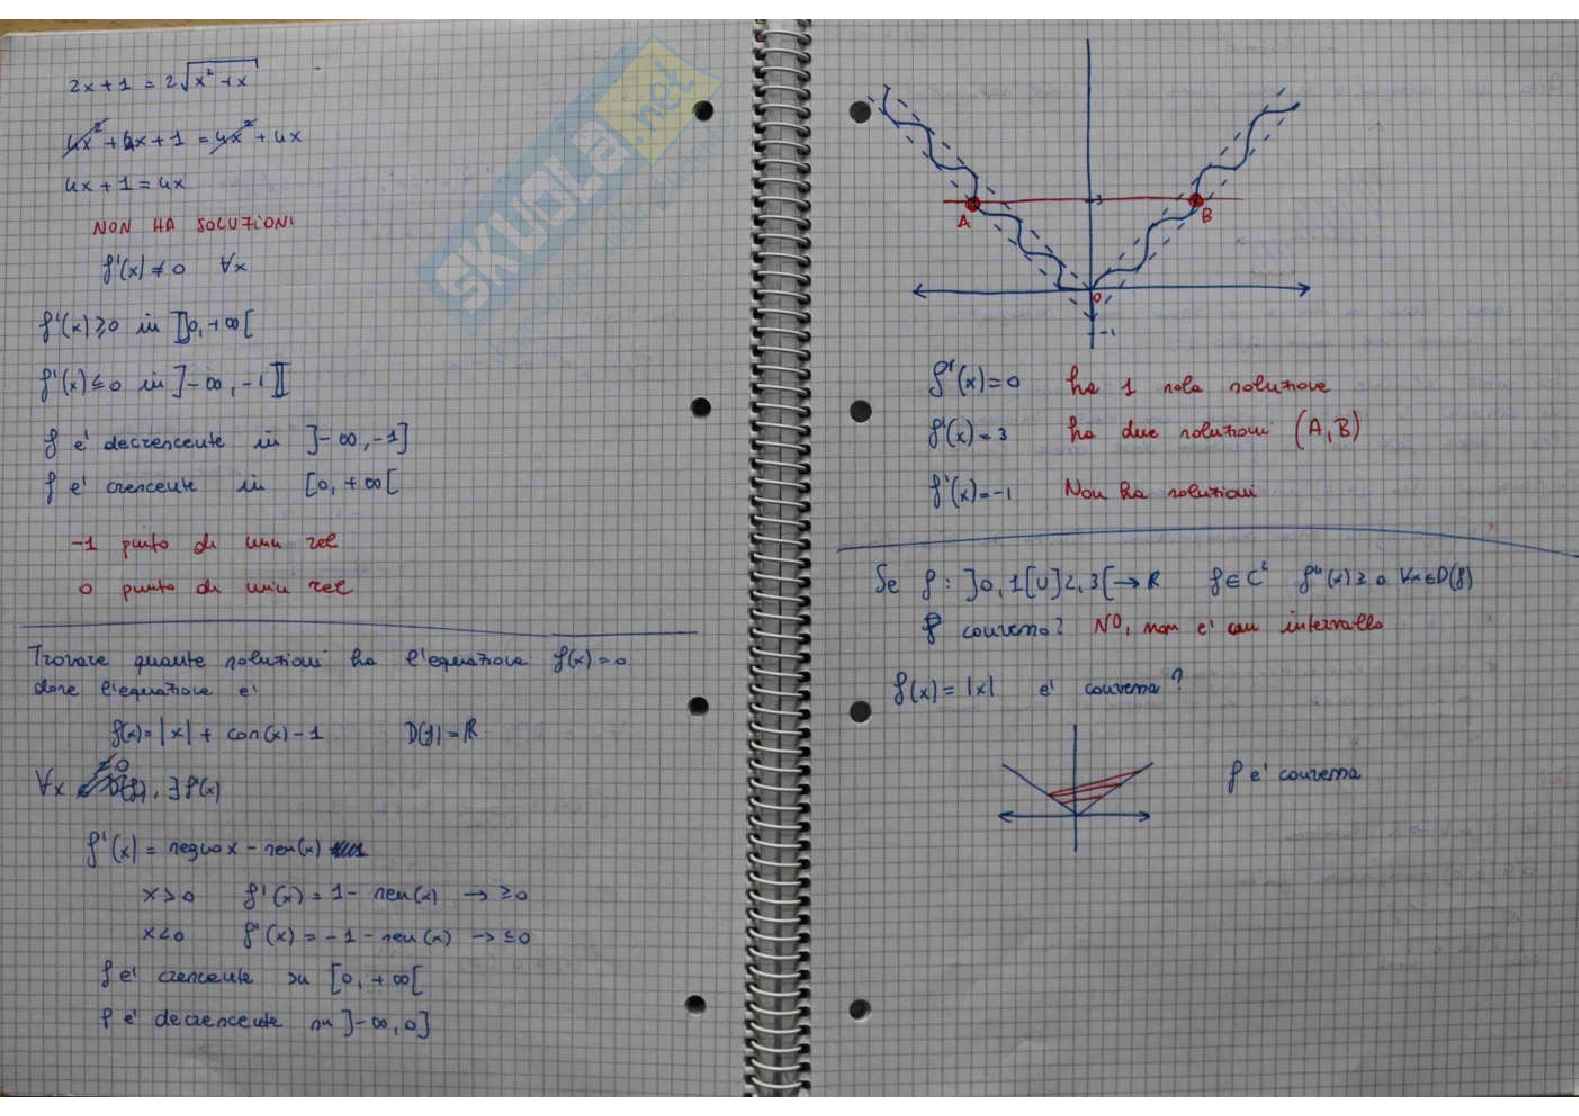 2x+1 = 2√x²+x
4x²+4x+1 = 4x²+4x
4x+1=4x
NON HA SOLUZIONI
f'(x)≠0 ∀x
f'(x)≥0 in ]0,+∞[
f'(x)≤0 in ]-∞,-1[
f e' decrescente in ]-∞,-1]
f e' crescente in [0,+∞[
-1 punto di min rel
0 punto di min rel
Trovare quante soluzioni ha l'equazione f(x)=0
dove l'equazione e'
f(x)=|x|+cos(x)-1 D(f)=R
∀x ≠0, ∃f'(x)
f'(x)= segno x - sen(x)
x>0 f'(x)=1-sen(x) → ≥0
x<0 f'(x)=-1-sen(x) → ≤0
f e' crescente su [0,+∞[
f e' decrescente su ]-∞,0]
SKUOLA.net
3
A
B
0
-1
f(x)=0 ha 1 sola soluzione
f(x)=3 ha due soluzioni (A,B)
f(x)=-1 Non ha soluzioni
Se f: ]0,1[∪]2,3[→R f∈C² f''(x)≥0 ∀x∈D(f)
f convessa? NO, non e' un intervallo
f(x)=|x| e' convessa?
f e' convessa